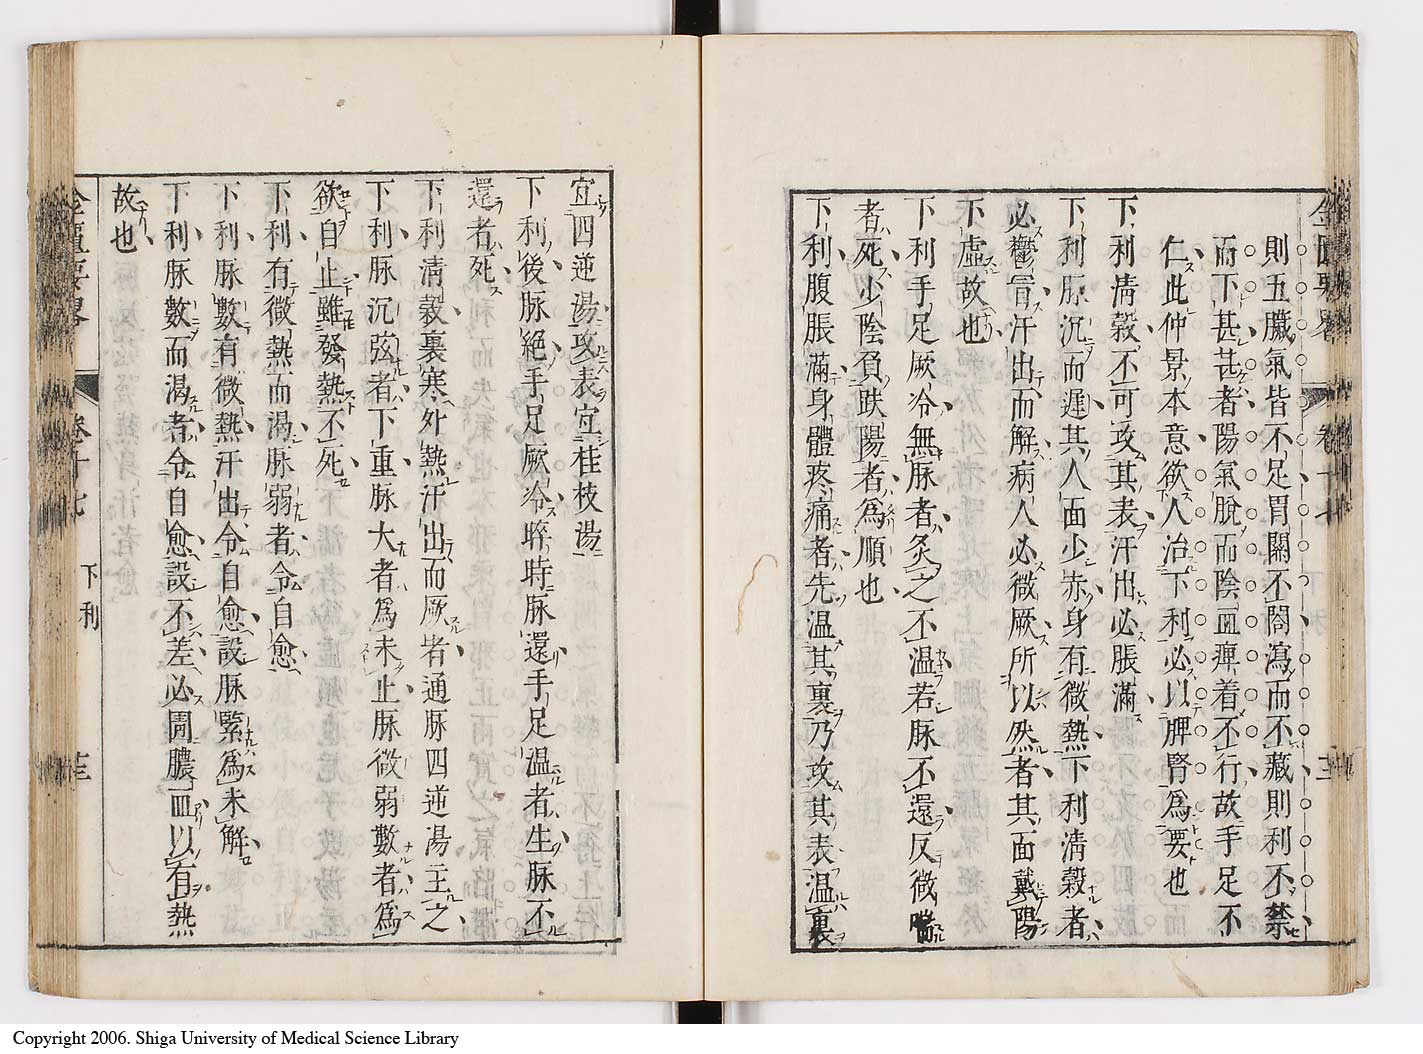 則五臟氣皆不足胃關不闔瀉而不藏則利不禁
而下甚甚者陽氣脫而陰血痺着不行故手足不
仁此仲景本意欲人治下利必以脾腎爲要也
下利清穀不可攻其表汗出必脹滿
下利脉沉而遲其人面少赤身有微熱下利清穀者
必鬱冒汗出而解病人必微厥所以然者其面戴陽
下虛故也
下利手足厥冷無脉者灸之不溫若脉不還反微喘
者死少陰負趺陽者爲順也
下利腹脹滿身體疼痛者先溫其裏乃攻其表溫裏
宜四逆湯攻表宜桂枝湯
下利後脉絕手足厥冷晬時脉還手足溫者生脉不
還者死
下利清穀裏寒外熱汗出而厥者通脉四逆湯主之
下利脉沉弦者下重脉大者爲未止脉微弱數者爲
欲自止雖發熱不死
下利有微熱而渴脉弱者令自愈
下利脉數有微熱汗出令自愈設脉緊爲未解
下利脉數而渴者令自愈設不差必圊膿血以有熱
故也
卷十七 下利
Copyright 2006. Shiga University of Medical Science Library